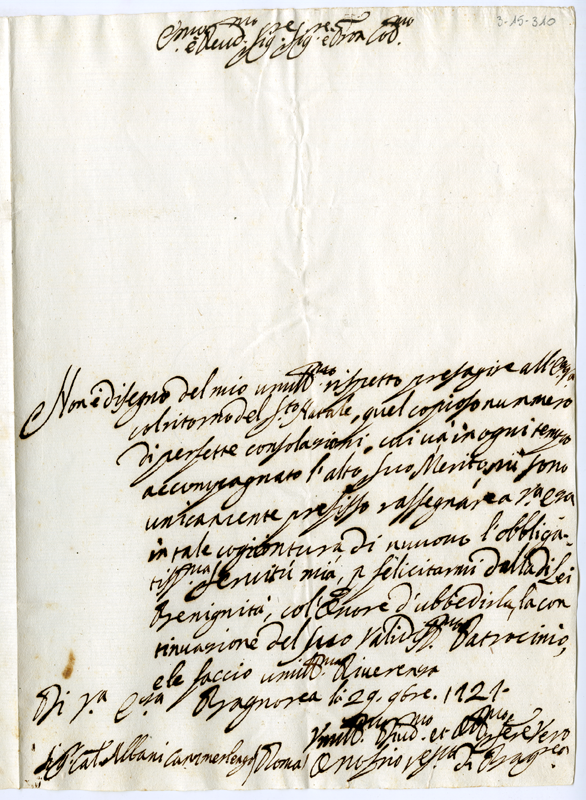 3-15-310
Em.mo e Reud.mo Sig.re Sig.re e Pron Col.mo
Non è disegno del mio umill.mo rispetto presagire all'
col ritorno del S.to Natale, quel copioso nummero
di perfette consolazioni, cui và in ogni tempo
accompagnato l'alto suo Merito, mi sono
unicamente prefisso rassegnare a V.ra Em.za
in tale cogiontura di nuouo l'obbliga-
tiss.ma seruitù mia, p felicitarmi dalla di Lei
Benignità, col'Onore d'ubbedirla, la con
tinuazione del suo ualidiss.mo Patrocinio,
e le faccio umill.ma Riuerenza
Di V.ra Em.za Bagnorea li 29. 9bre. 1721.
Umill.mo Diuot.mo et Obb.mo Ser.re Vero
Sig. Card. Albani Camerlengo (Roma) Onofrio di Bagnorea